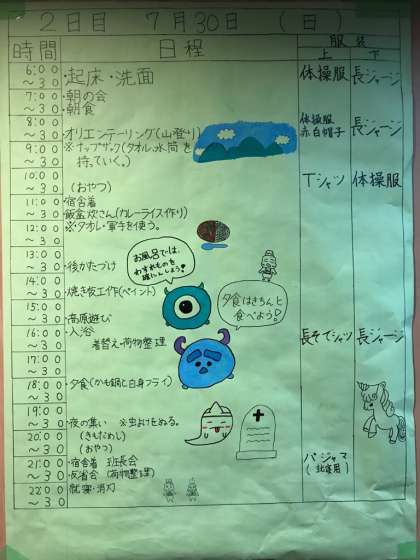 2日目 7月30日 (日)
時間 日程 服装
上 下
6:00 ・起床・洗面 体操服 長ジャージ
～30
7:00 ・朝の会
～30 ・朝食
8:00 体操服 長ジャージ
～30 オリエンテーリング(山登り) 赤白帽子
9:00 ※ナップザック(タオル、水筒を
～30 持っていく。)
10:00 Tシャツ 体操服
～30 (おやつ)
11:00 ・宿舎着
～30 飯盒炊さん(カレーライス作り)
12:00 ※タオル・軍手を使う。
～30
13:00 お風呂では、
わすれものを
確にんしよう!
～30 ・後かたづけ
14:00
～30 ・焼き板工作(ペイント)
夕食はきちんと
食べよう!
15:00
～30 ・高原遊び
16:00 ・入浴 長そでシャツ 長ジャージ
～30 着替え・荷物整理
17:00
～30
18:00 ・夕食(かも鍋と白身フライ)
～30
19:00
～30 ・夜の集い ※虫よけをぬる。
20:00 (きもだめし)
～30 (おやつ)
21:00 ・宿舎着 班長会 パジャマ
～30 ・反省会 (荷物整理) (就寝用)
22:00 就寝・消灯
～30